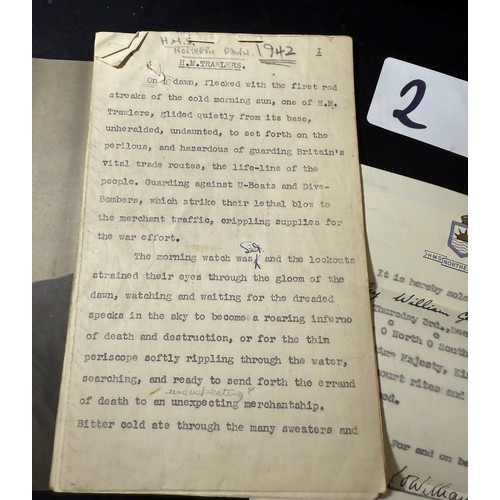 H.M.S.
NORTHERN DAWN. 1942 I
H.M.TRAWLERS.
On a dawn, flecked with the first red
streaks of the cold morning sun, one of H.M.
Trawlers, glided quietly from its base,
unheralded, undaunted, to set forth on the
perilous, and hazardous of guarding Britain's
vital trade routes, the life-line of the
people. Guarding against U-Boats and Dive-
Bombers, which strike their lethal blow to
the merchant traffic, crippling supplies for
the war effort.
Set.
The morning watch was and the lookouts
strained their eyes through the gloom of the
dawn, watching and waiting for the dreaded
specks in the sky to become a roaring inferno
of death and destruction, or for the thin
periscope softly rippling through the water,
searching, and ready to send forth the errand
unsuspecting
of death to an unexpecting merchantship.
Bitter cold ate through the many sweaters and
2
H.M.S. NORTHE
It is hereby sole
William
hursday 3rd., Dec
O North O South
Majesty, Ki
ourt rites and
ed.
For and on be
William